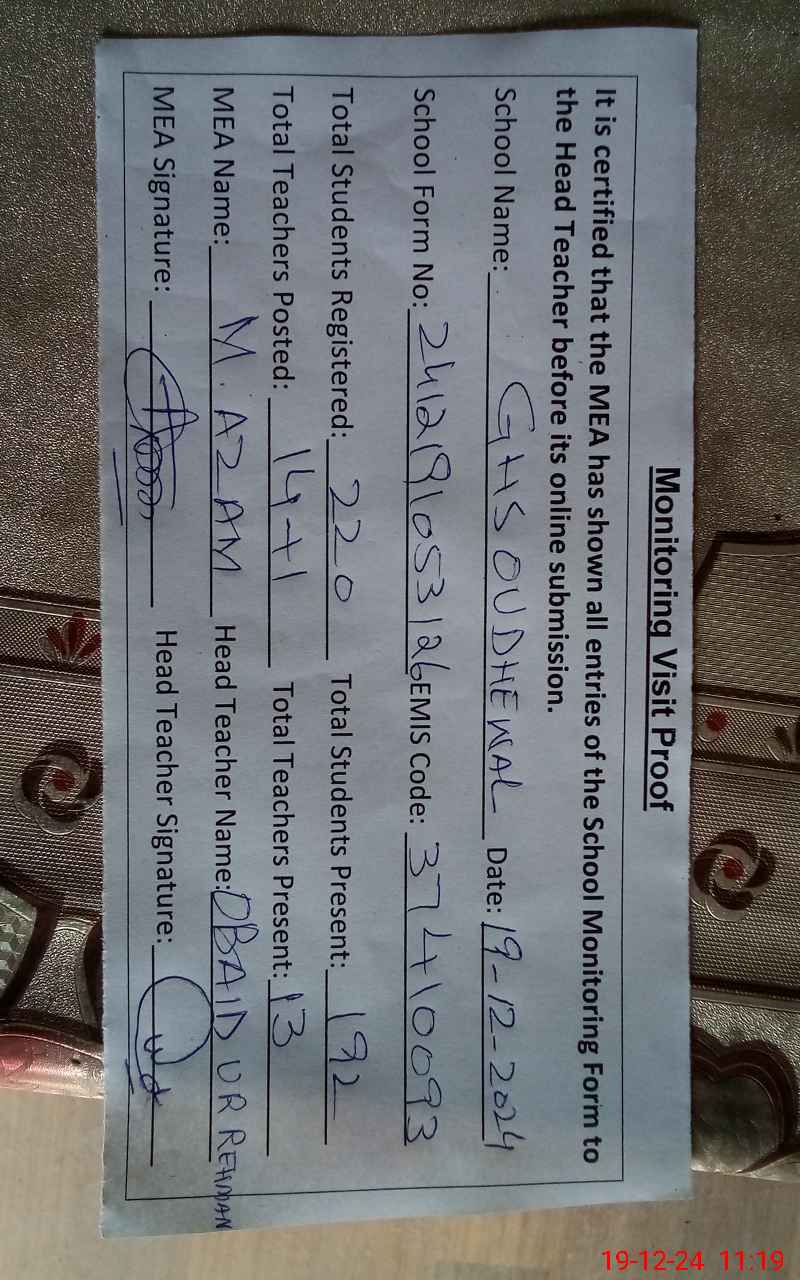 Monitoring Visit Proof
It is certified that the MEA has shown all entries of the School Monitoring Form to
the Head Teacher before its online submission.
School Name: GHS OUDHEWAL Date: 19-12-2024
School Form No: 2412191053126 EMIS Code: 37410093
Total Students Registered: 220 Total Students Present: 192
Total Teachers Posted: 14+1 Total Teachers Present: 13
MEA Name: M. AZAM Head Teacher Name: OBAID UR REHMAN
MEA Signature: Head Teacher Signature:
19-12-24 11:19